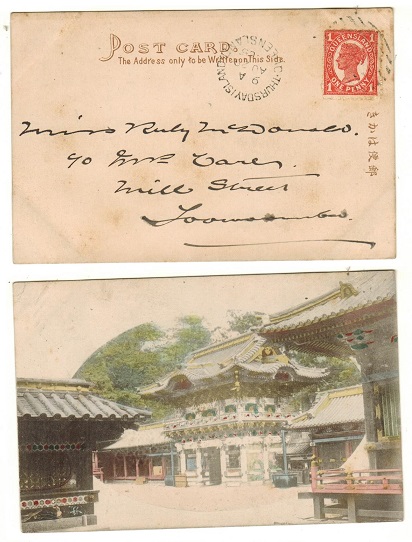 POST CARD
The Address only to be Written on This Side.
THURSDAY ISLAND
QUEENSLAND
QUEENSLAND
1 1
ONE PENNY
きかは便郵
Miss Ruby McDonald.
Mill Street
Toowoomba.